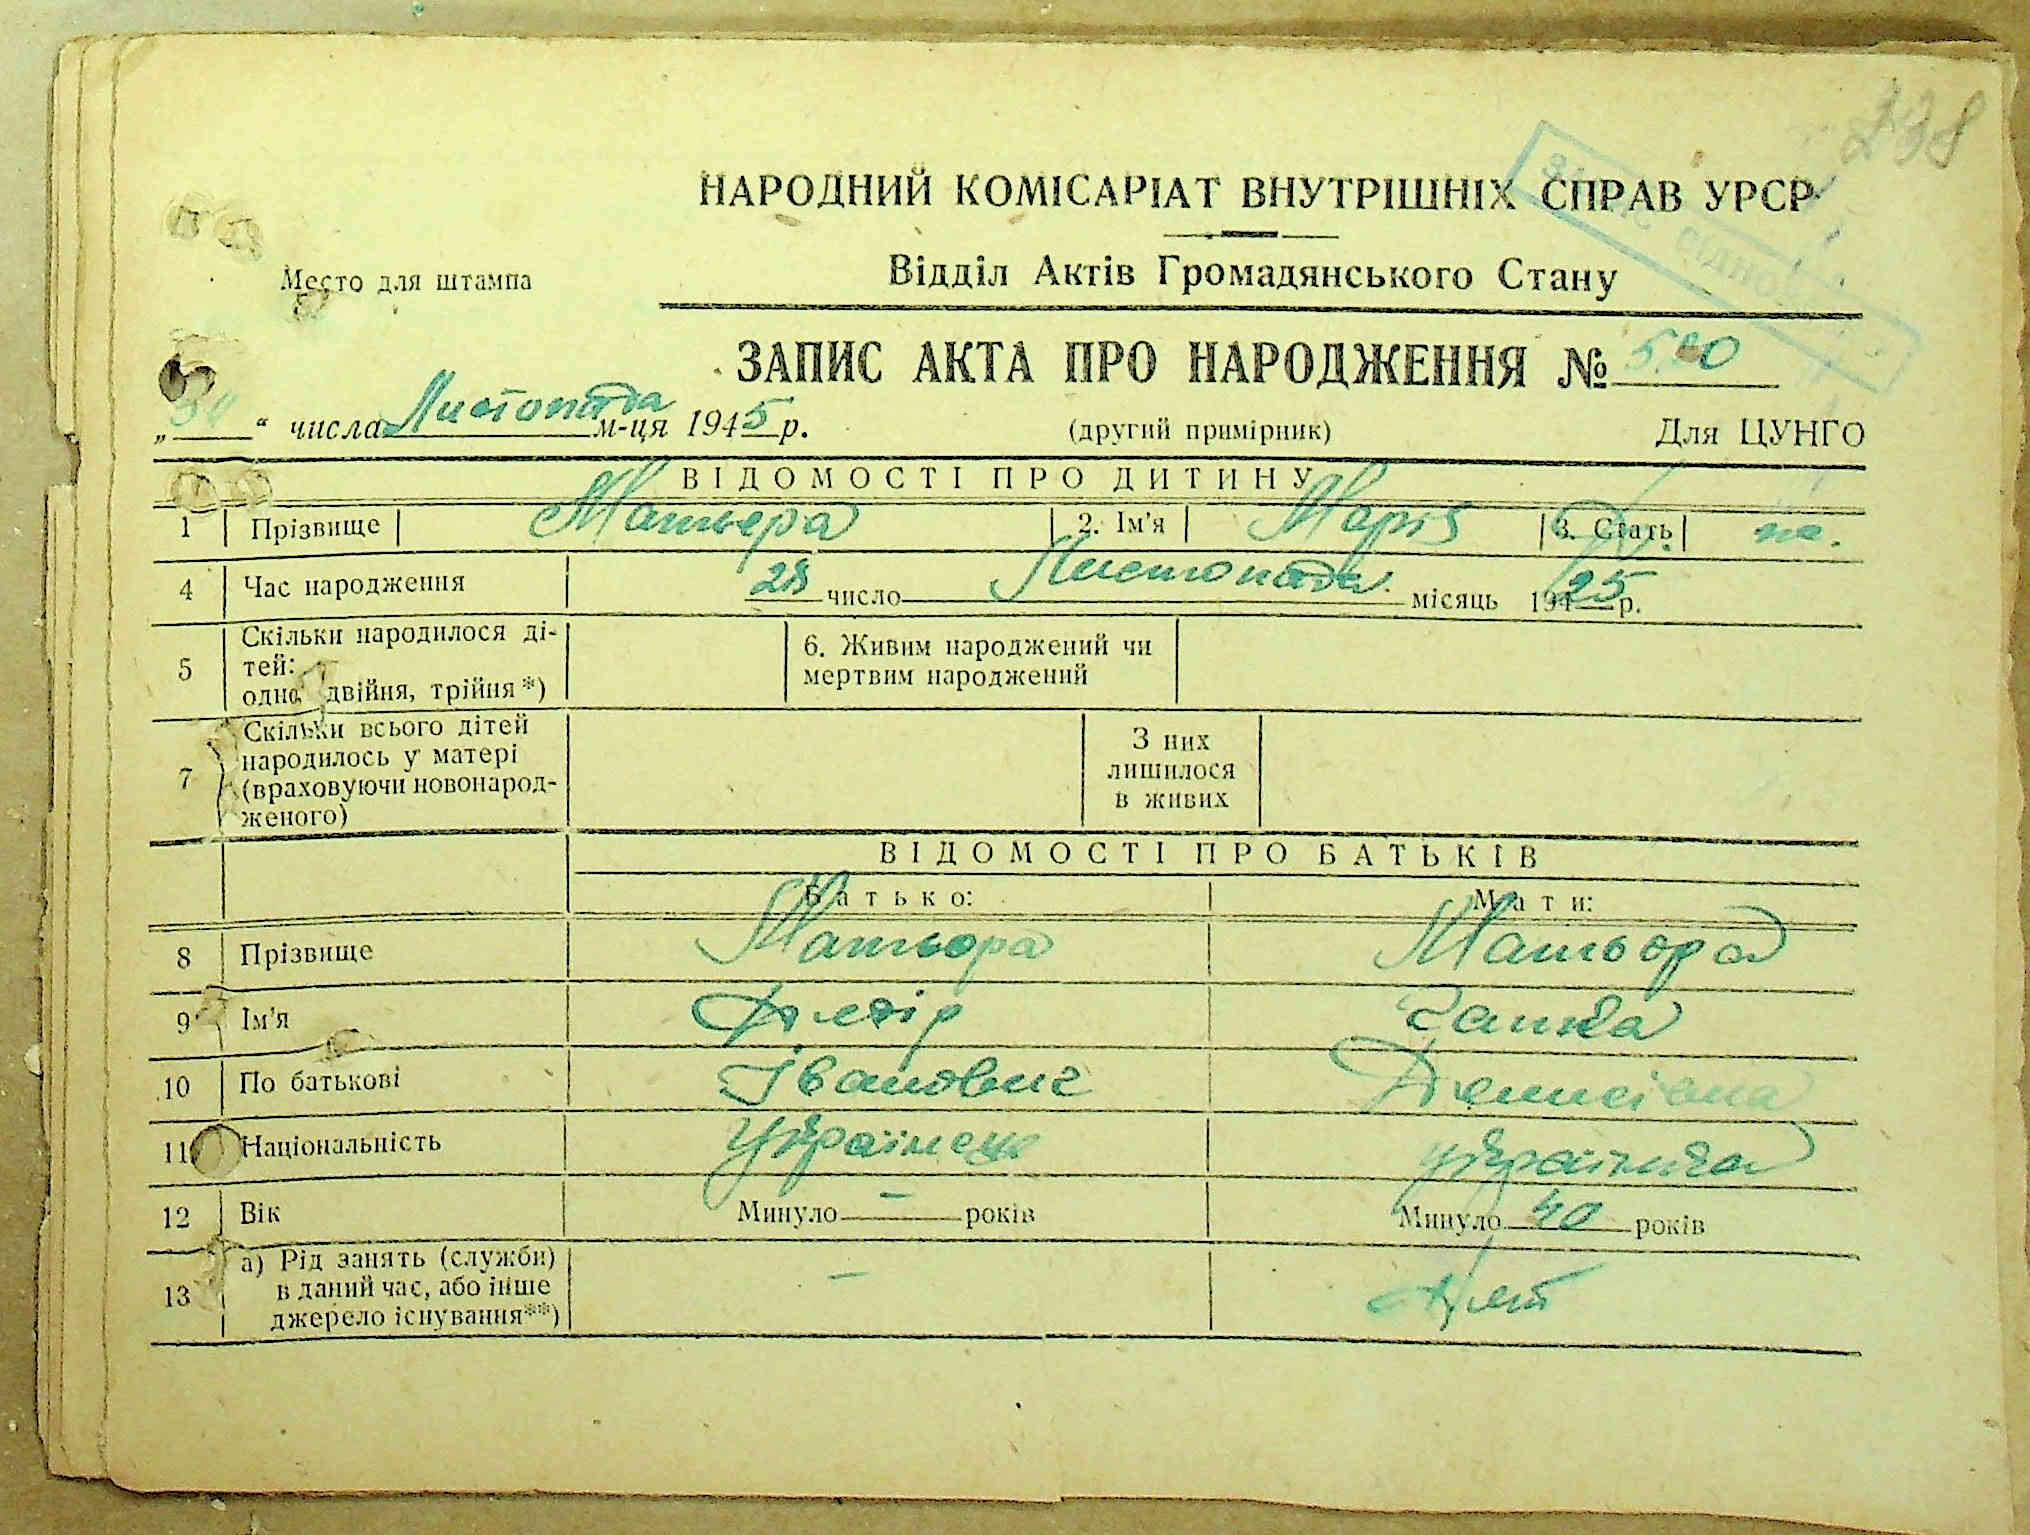 238
НАРОДНИЙ КОМІСАРІАТ ВНУТРІШНІХ СПРАВ УРСР
Место для штампа
Відділ Актів Громадянського Стану
ЗАПИС АКТА ПРО НАРОДЖЕННЯ № 520
„30“ числа Листопада м-ця 1945 р. (другий примірник) Для ЦУНГО
ВІДОМОСТІ ПРО ДИТИНУ
1 Прізвище Матьера 2. Ім'я Марія 3. Стать
4 Час народження 28 число Листопада місяць 1925 р.
5 Скільки народилося ді-
тей:
одно, двійня, трійня*)
6. Живим народжений чи
мертвим народжений
7 Скільки всього дітей
народилось у матері
(враховуючи новонарод-
женого)
З них
лишилося
в живих
ВІДОМОСТІ ПРО БАТЬКІВ
Батько: Мати:
8 Прізвище Матьора Матьора
9 Ім'я Ганна
10 По батькові Іванович Денисівна
11 Національність Українець українка
12 Вік Минуло — років Минуло 40 років
13 а) Рід занять (служби)
в даний час, або інше
джерело існування**)
—